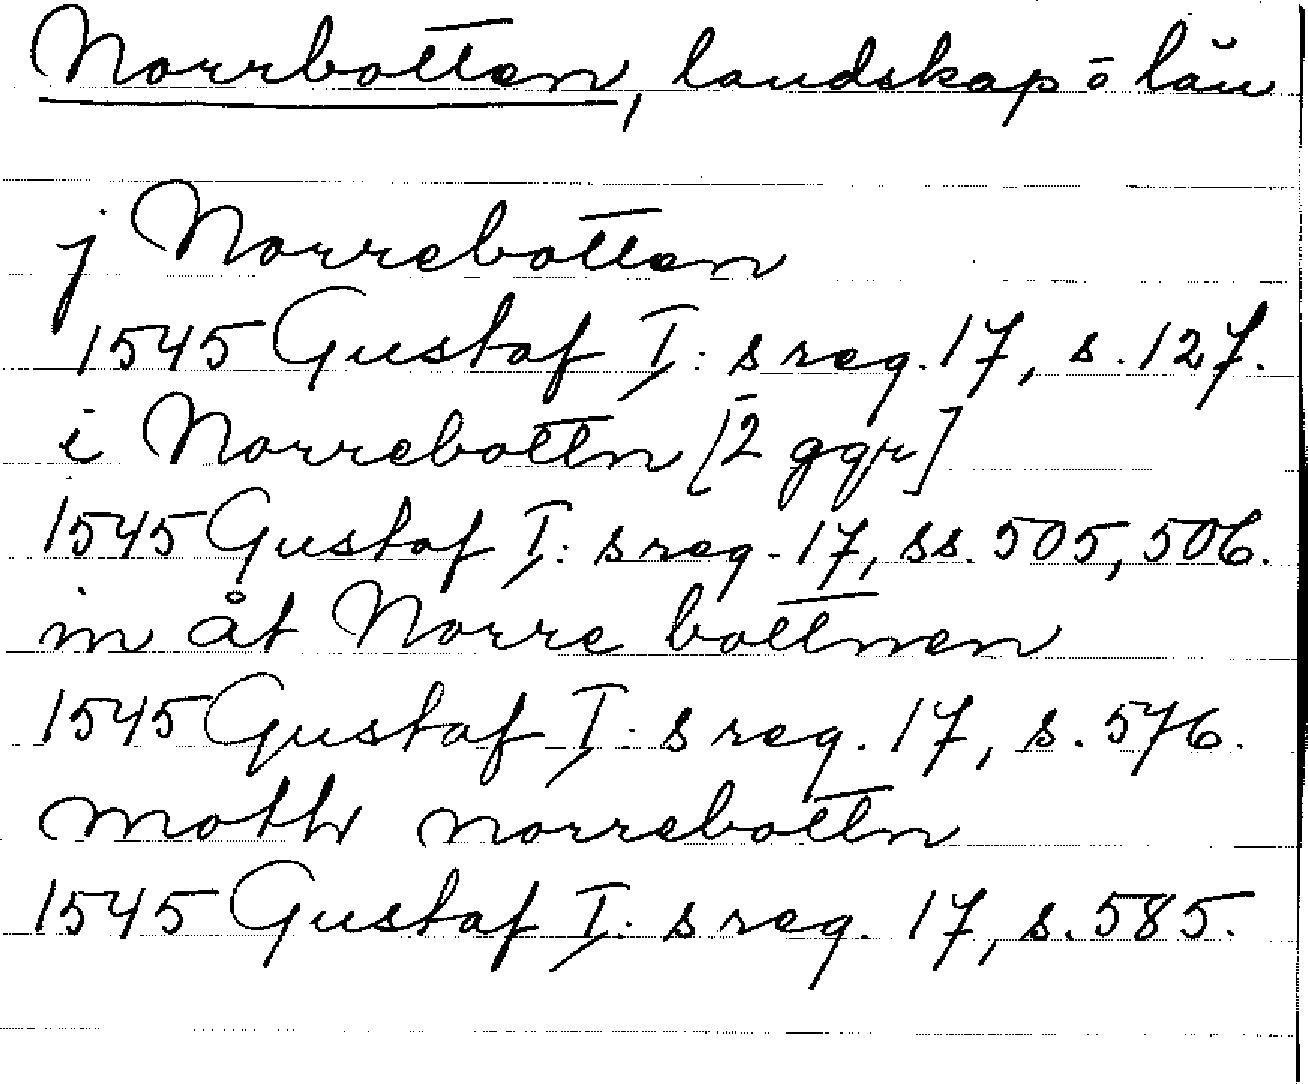 Norrbotten, landskap o län
j Norrebotten
1545 Gustaf I:s reg. 17, s. 127.
i Norrebottn [2 ggr]
1545 Gustaf I:s reg. 17, ss. 505, 506.
in åt Norre bottnen
1545 Gustaf I:s reg. 17, s. 576.
moth norrebottn
1545 Gustaf I:s reg. 17, s. 585.